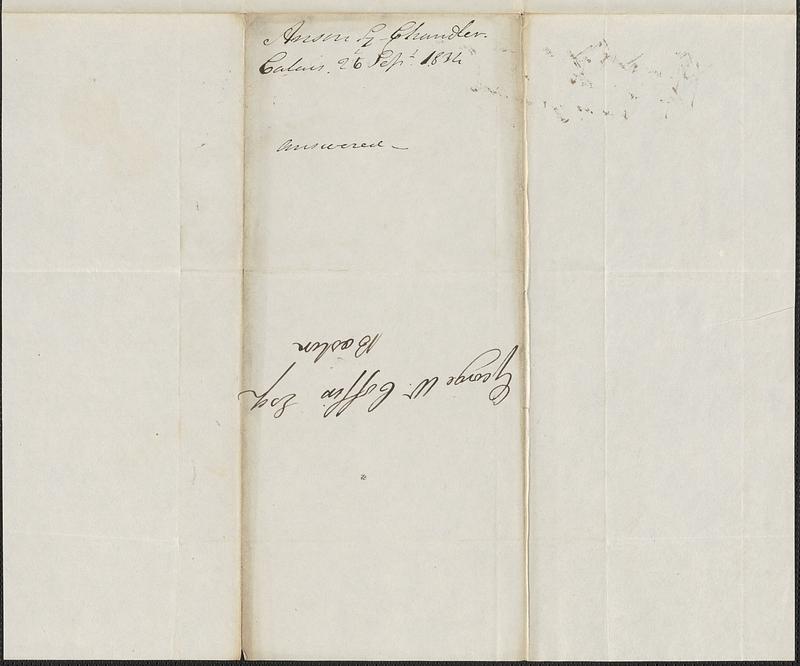 Anson G Chandler.
Calais. 26 Sept 1834
answered –
George W. Coffin Esq
Boston